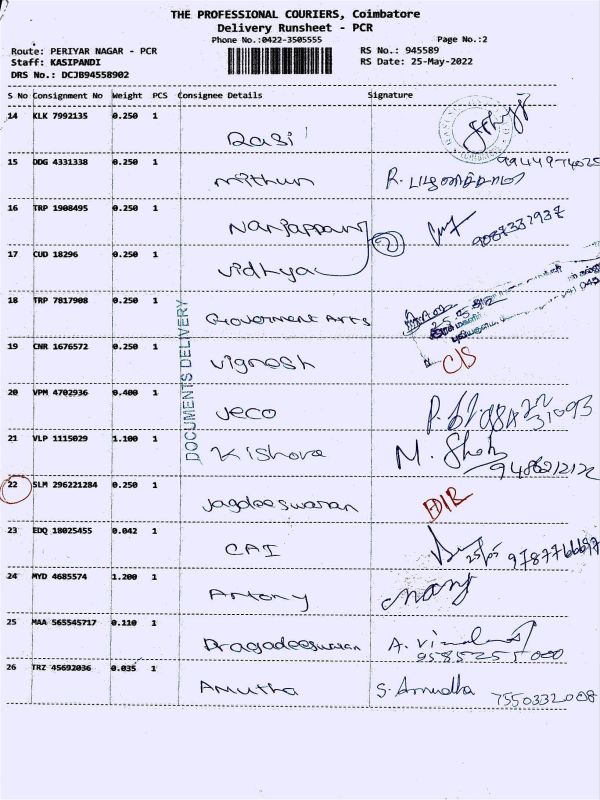 THE PROFESSIONAL COURIERS, Coimbatore
Delivery Runsheet - PCR
Phone No.:0422-3505555
Page No.:2
Route: PERIYAR NAGAR - PCR
RS No.: 945589
Staff: KASIPANDI
RS Date: 25-May-2022
DRS No.: DCJB94558902
S No Consignment No Weight PCS Consignee Details Signature
14 KLK 7992135 0.250 1 Rasi
15 DDG 4331338 0.250 1 Mithun R.
16 TRP 1908495 0.250 1 Nanjappan 2 9087332937
17 CUD 18296 0.250 1 Vidhya
18 TRP 7817908 0.250 1 Government Arts
19 CNR 1676572 0.250 1 Vignesh C/S
20 VPM 4702936 0.400 1 Jeco
21 VLP 1115029 1.100 1 Kishore M.
22 SLM 296221284 0.250 1 Jagdeeswaran
23 EDQ 18025455 0.042 1 CAI
24 MYD 4685574 1.200 1 Antony
25 MAA 565545717 0.110 1 Pragadeeswaran A. 9585255000
26 TRZ 45692036 0.035 1 Amutha S. Amudha 7550332008
DOCUMENTS DELIVERY